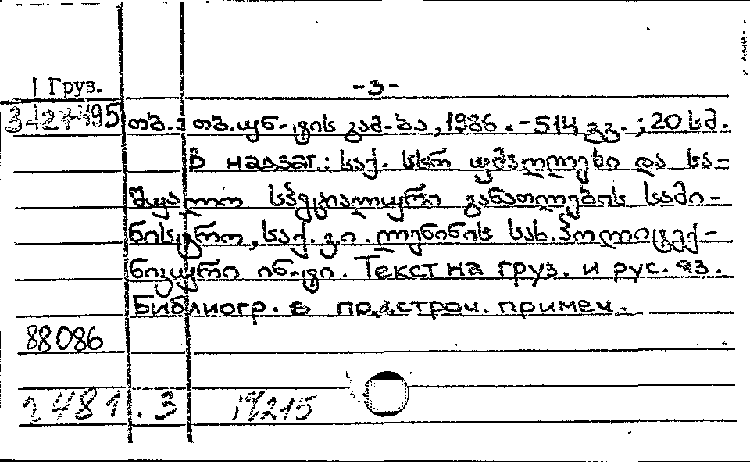 -3-
1 Груз.
3-127495 თბ.: თბ.უნ.-ტის გამ-ბა, 1986. - 514 გვ. ; 20 სმ.
В надзаг.: საქ. სსრ უმაღლესი და სა-
შუალო სპეციალური განათლების სამი-
ნისტრო, საქ. ვ.ი. ლენინის სახ. პოლიტექ-
ნიკური ინ-ტი. Текст на груз. и рус. яз.
Библиогр. в подстроч. примеч.
88086
2481.3 19215